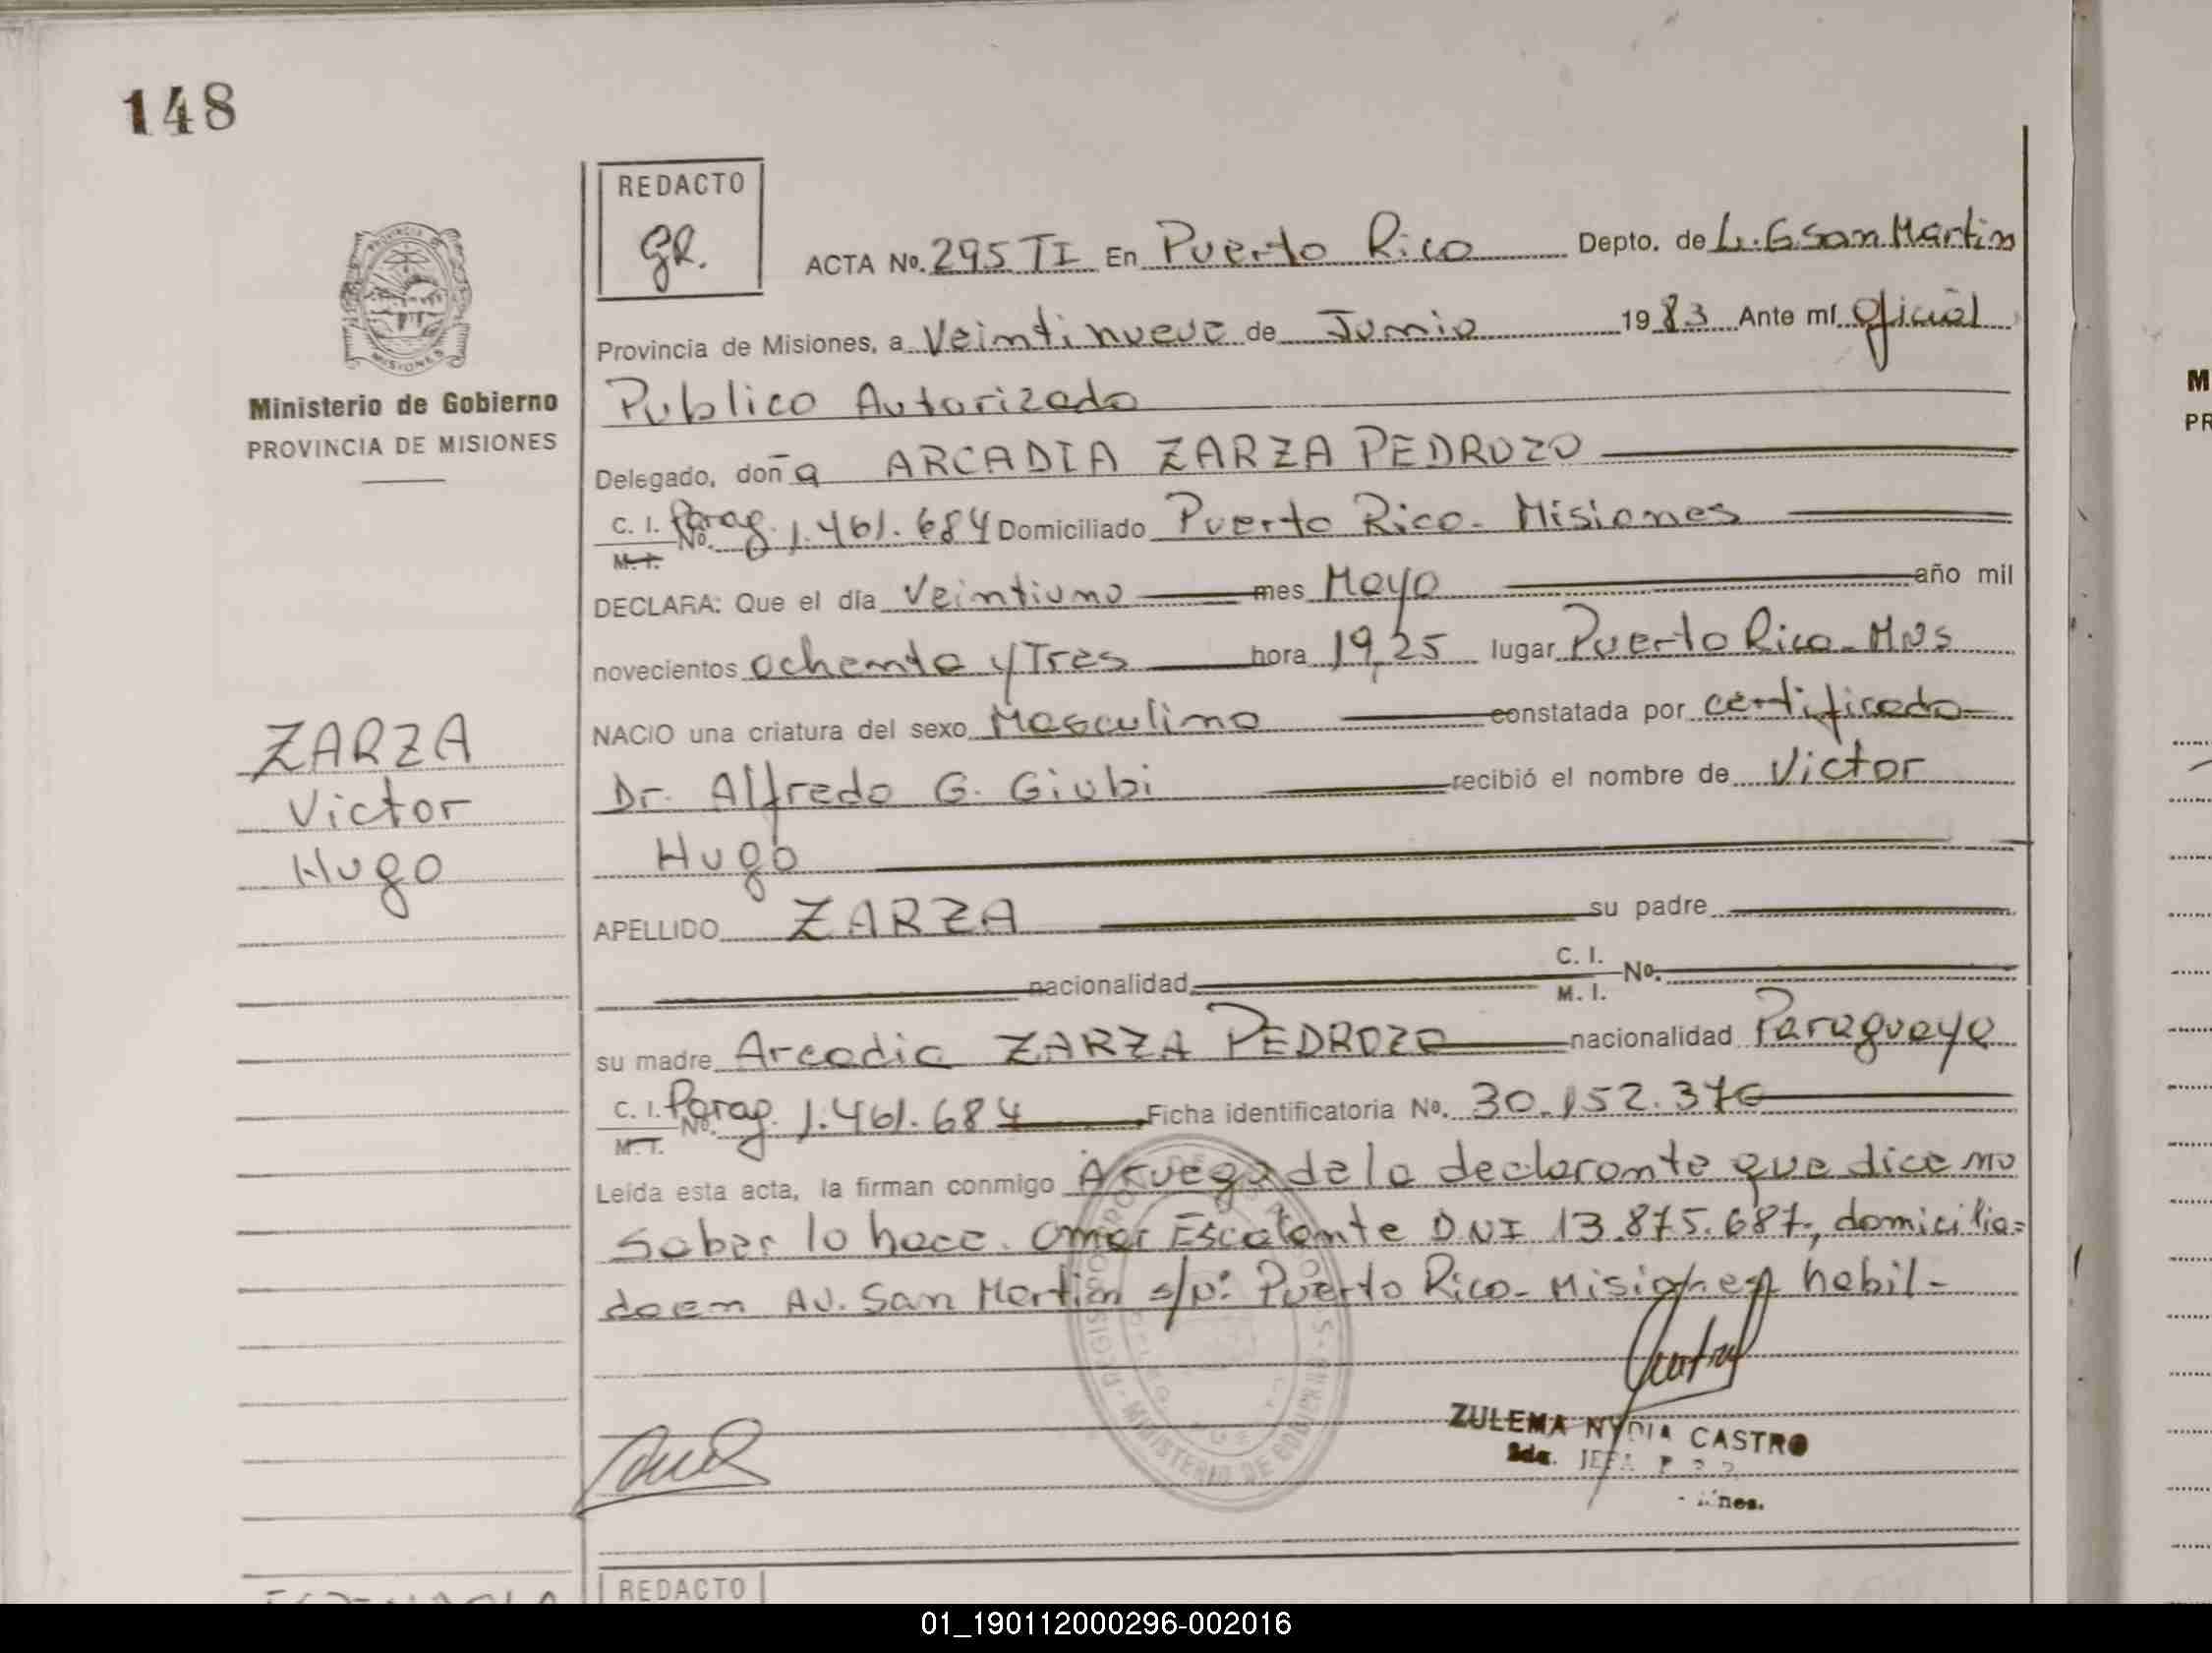 148
REDACTO
gR.
ACTA No. 295 TI En Puerto Rico Depto. de L. G San Martin
Provincia de Misiones, a Veintinueve de Junio 1983 Ante mí oficial
Publico Autorizado
Delegado, doña ARCADIA ZARZA PEDROZO
C. I. M. I. No. Parag. 1.461.684 Domiciliado Puerto Rico - Misiones
DECLARA: Que el día Veintiuno mes Mayo año mil
novecientos ochenta y Tres hora 19,25 lugar Puerto Rico - MNS
NACIO una criatura del sexo Masculino constatada por certificado
Dr. Alfredo G. Giubi recibió el nombre de Victor
Hugo
APELLIDO ZARZA su padre
nacionalidad C. I. M. I. No.
su madre Arcadia ZARZA PEDROZO nacionalidad Paraguaya
C. I. M. I. No. Parag. 1.461.684 Ficha identificatoria No. 30.152.376
Leída esta acta, la firman conmigo A ruego de la declarante que dice no
saber lo hace. Omar Escalante DNI 13.875.687, domicilia=
do en Av. San Martin s/n: Puerto Rico - Misiones habil -
ZULEMA NYDIA CASTRO
JEFA
REGISTRO
MINISTERIO DE GOBIERNO
Ministerio de Gobierno
PROVINCIA DE MISIONES
ZARZA
Victor
Hugo
REDACTO
M
PR
01_190112000296-002016